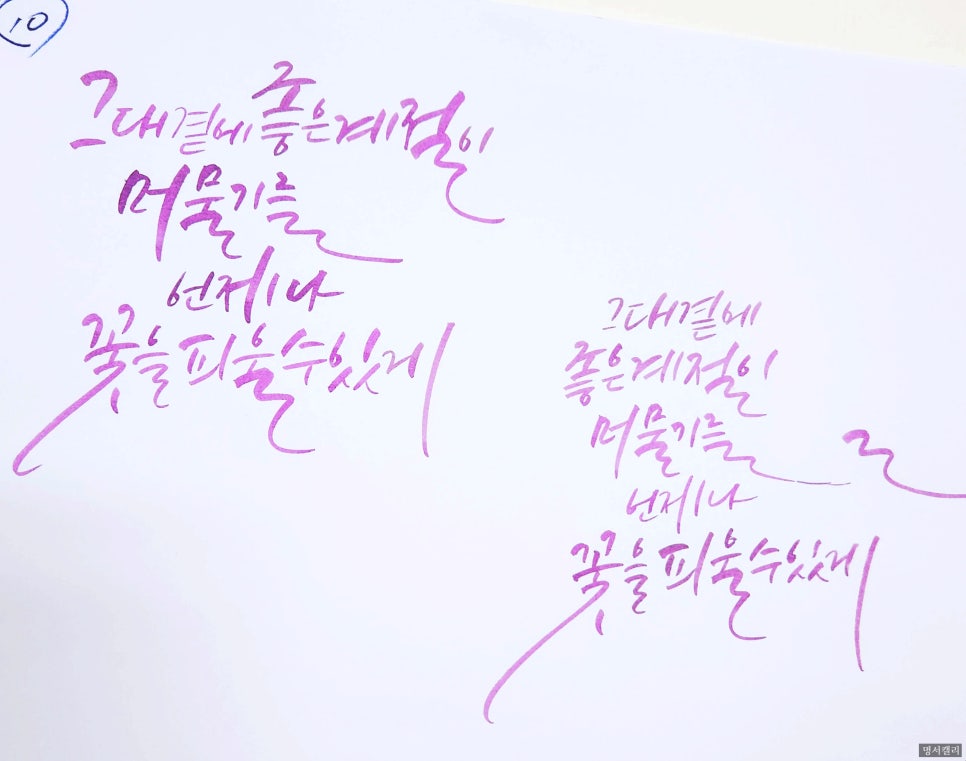 10
그대곁에 좋은계절이
머물기를
언제나
꽃을 피울수있게
그대곁에
좋은계절이
머물기를
언제나
꽃을 피울수있게
ㄹ
명서캘리